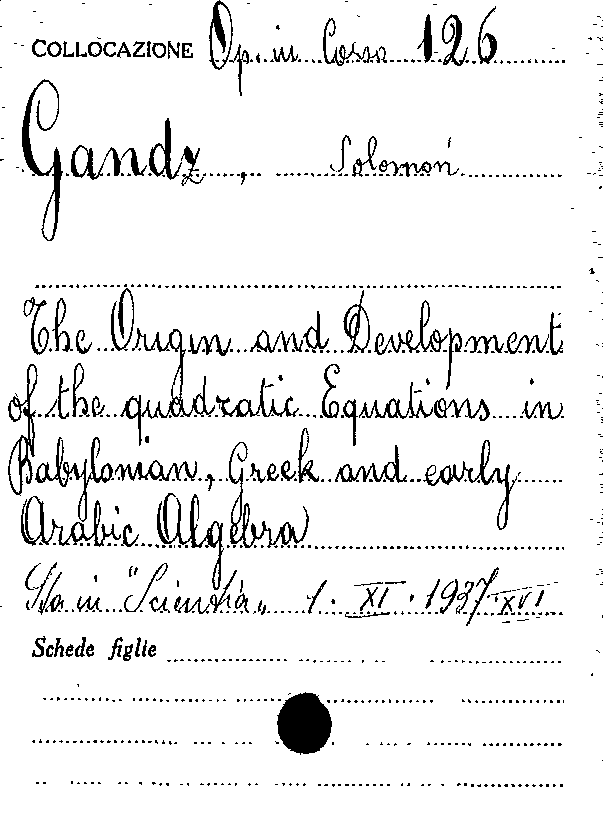 COLLOCAZIONE Op. in Cossa 126
Gandz, Solomon
The Origin and Development
of the quadratic Equations in
Babylonian, Greek and early
Arabic Algebra
Sta in "Scientia" 1. XI. 1937. XVI
Schede figlie